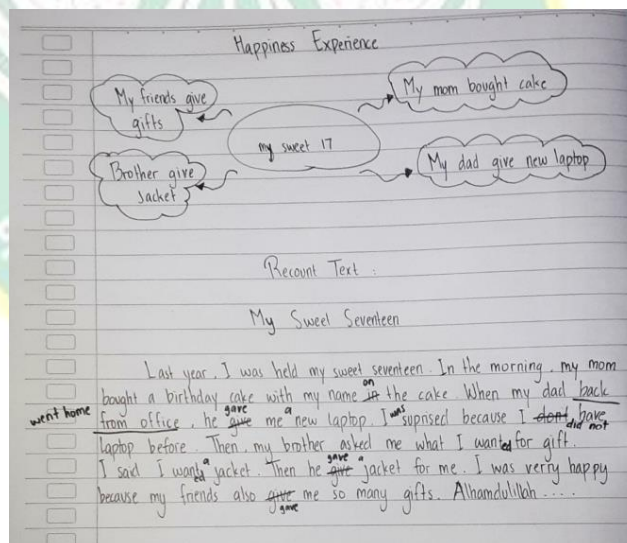 Happiness Experience
My friends give
gifts
My mom bought cake
my sweet 17
Brother give
Jacket
My dad give new laptop
Recount Text :
My Sweet Seventeen
Last year, I was held my sweet seventeen. In the morning, my mom
bought a birthday cake with my name in on the cake. When my dad back
went home from office, he give gave me a new laptop. I was suprised because I dont did not have
laptop before. Then, my brother asked me what I wanted for gift.
I said I wanted a jacket. Then he give gave a jacket for me. I was verry happy
because my friends also give gave me so many gifts. Alhamdulillah ....